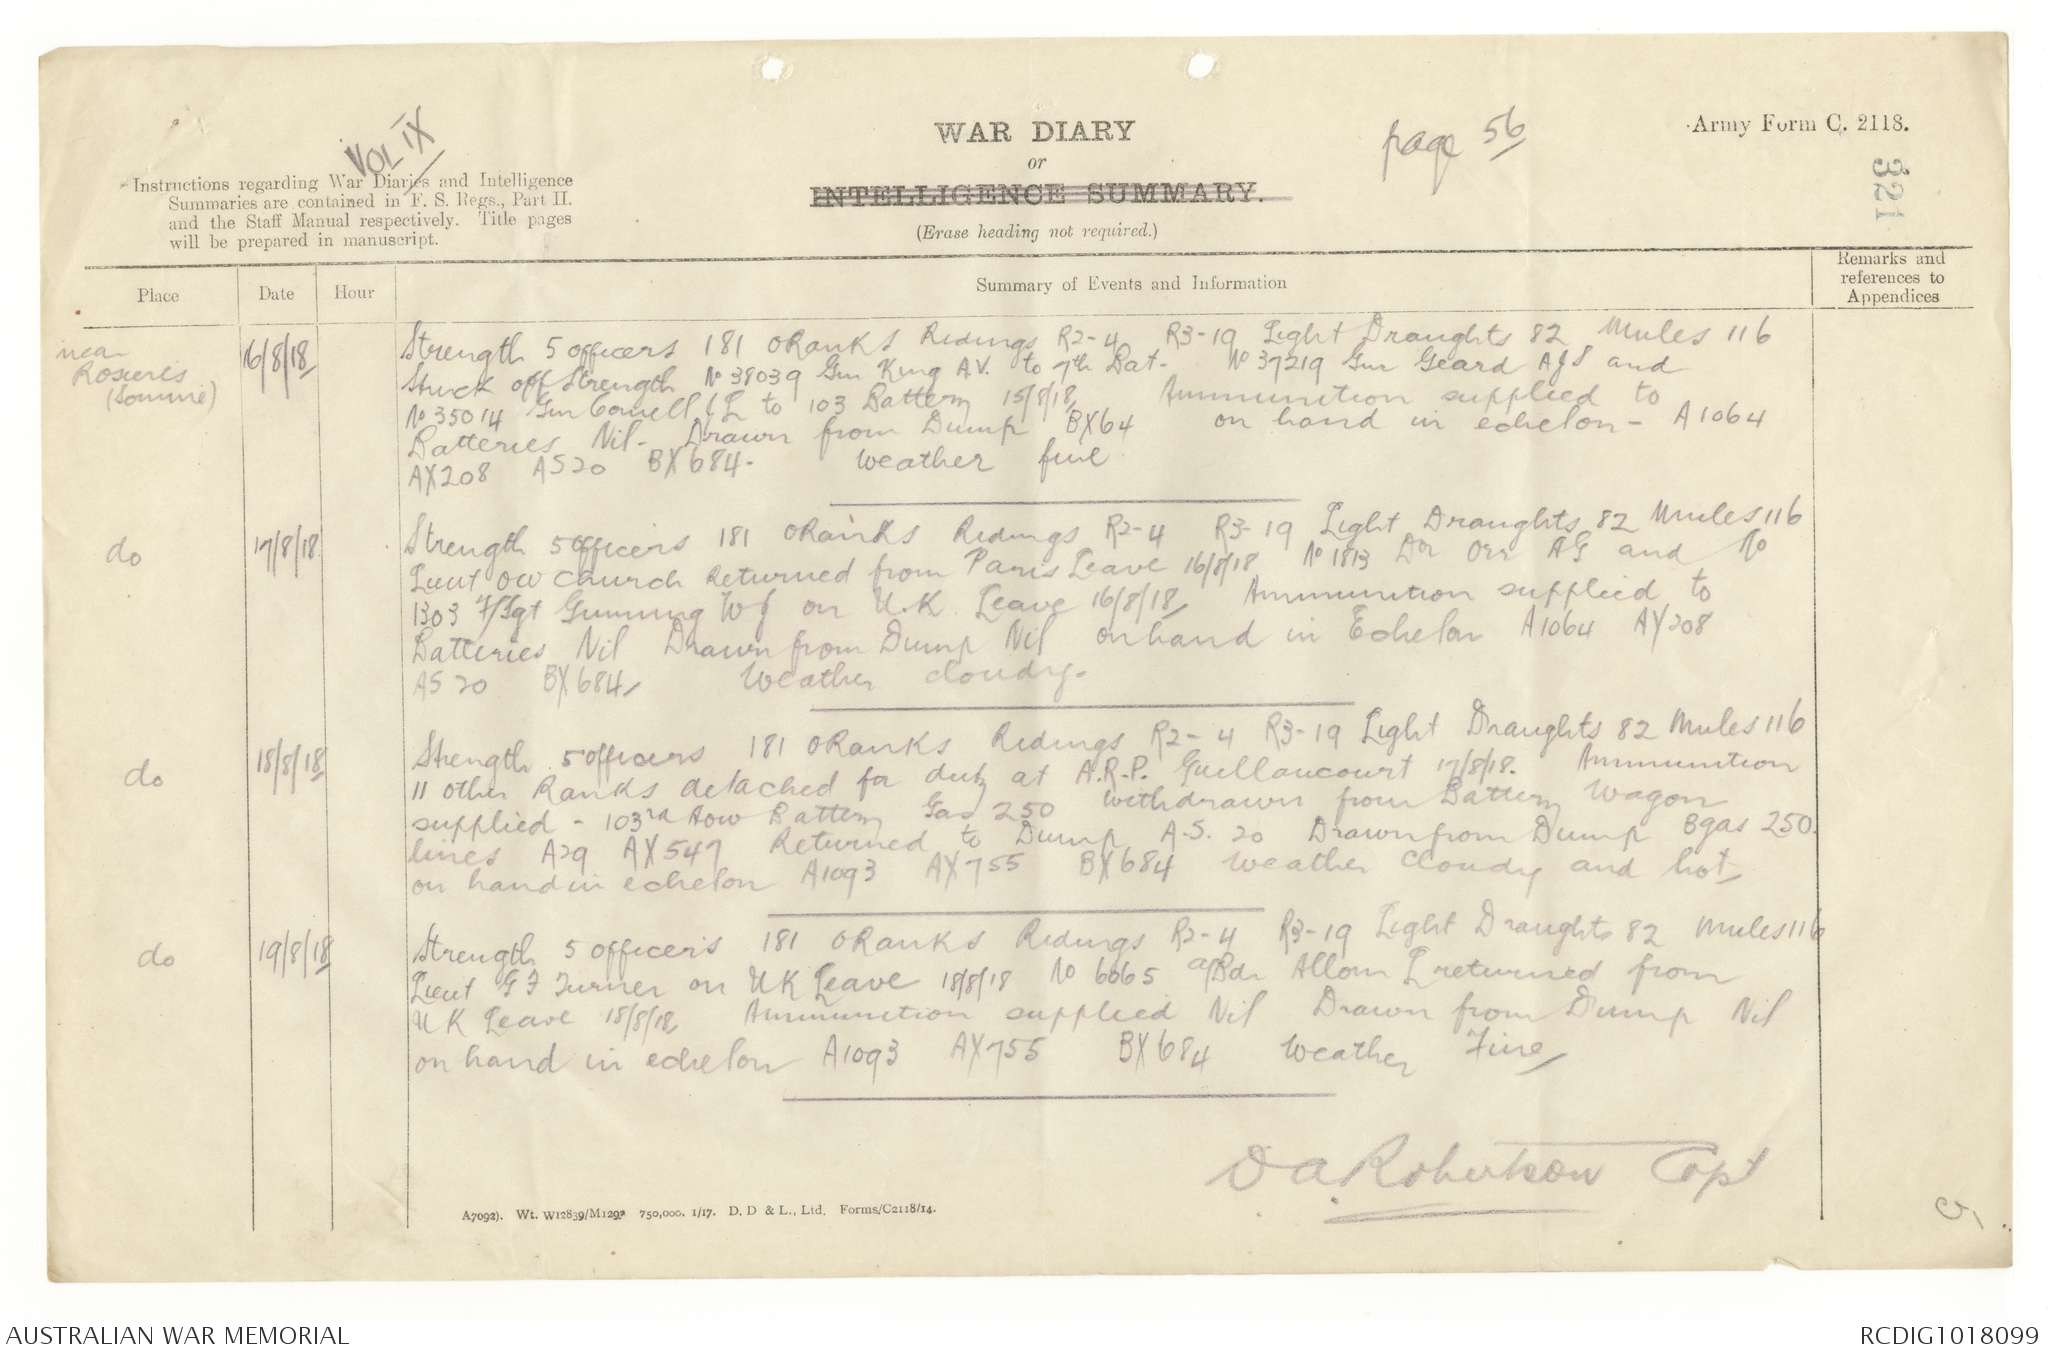 VOL IX
Instructions regarding War Diaries and Intelligence
Summaries are contained in F. S. Regs., Part II.
and the Staff Manual respectively. Title pages
will be prepared in manuscript.
WAR DIARY
or
INTELLIGENCE SUMMARY.
(Erase heading not required.)
page 56
Army Form C. 2118.
321
Place
Date
Hour
Summary of Events and Information
Remarks and
references to
Appendices
near
Rosieres
(Somme)
16/8/18
Strength 5 officers 181 ORanks Ridings R2-4 R3-19 Light Draughts 82 Mules 116
Struck off Strength No 38039 Gnr King A.V. to 7th Bat- No 37219 Gnr Geard AJS and
No 35014 Gnr Cowell C L to 103 Battery 15/8/18 Ammunition supplied to
Batteries Nil- Drawn from Dump BX64 on hand in echelon- A1064
AX208 AS20 BX684- Weather fine
do
17/8/18
Strength 5 officers 181 ORanks Ridings R2-4 R3-19 Light Draughts 82 Mules 116
Lieut OW Church Returned from Paris Leave 16/8/18 No 1813 Dr Orr AG and No
1303 F/Sgt Gunning WJ on U.K. Leave 16/8/18 Ammunition supplied to
Batteries Nil Drawn from Dump Nil on hand in Echelon A1064 AX208
AS 20 BX684 Weather cloudy-
do
18/8/18
Strength 5 officers 181 ORanks Ridings R2-4 R3-19 Light Draughts 82 Mules 116
11 other Ranks detached for duty at A.R.P. Guillaucourt 17/8/18. Ammunition
supplied - 103rd How Battery Gas 250 withdrawn from Battery Wagon
lines A29 AX547 Returned to Dump A.S. 20 Drawn from Dump Bgas 250.
on hand in echelon A1093 AX755 BX684 Weather cloudy and hot
do
19/8/18
Strength 5 officers 181 ORanks Ridings R2-4 R3-19 Light Draughts 82 Mules 116
Lieut G F Turner on UK Leave 18/8/18 No 6065 a/Bdr Allom L returned from
UK Leave 18/8/18 Ammunition supplied Nil Drawn from Dump Nil
on hand in echelon A1093 AX755 BX684 Weather Fine
D A Robertson Capt
A7092). Wt. W12839/M1293 750,000. 1/17. D. D & L., Ltd. Forms/C2118/14.
AUSTRALIAN WAR MEMORIAL
RCDIG1018099